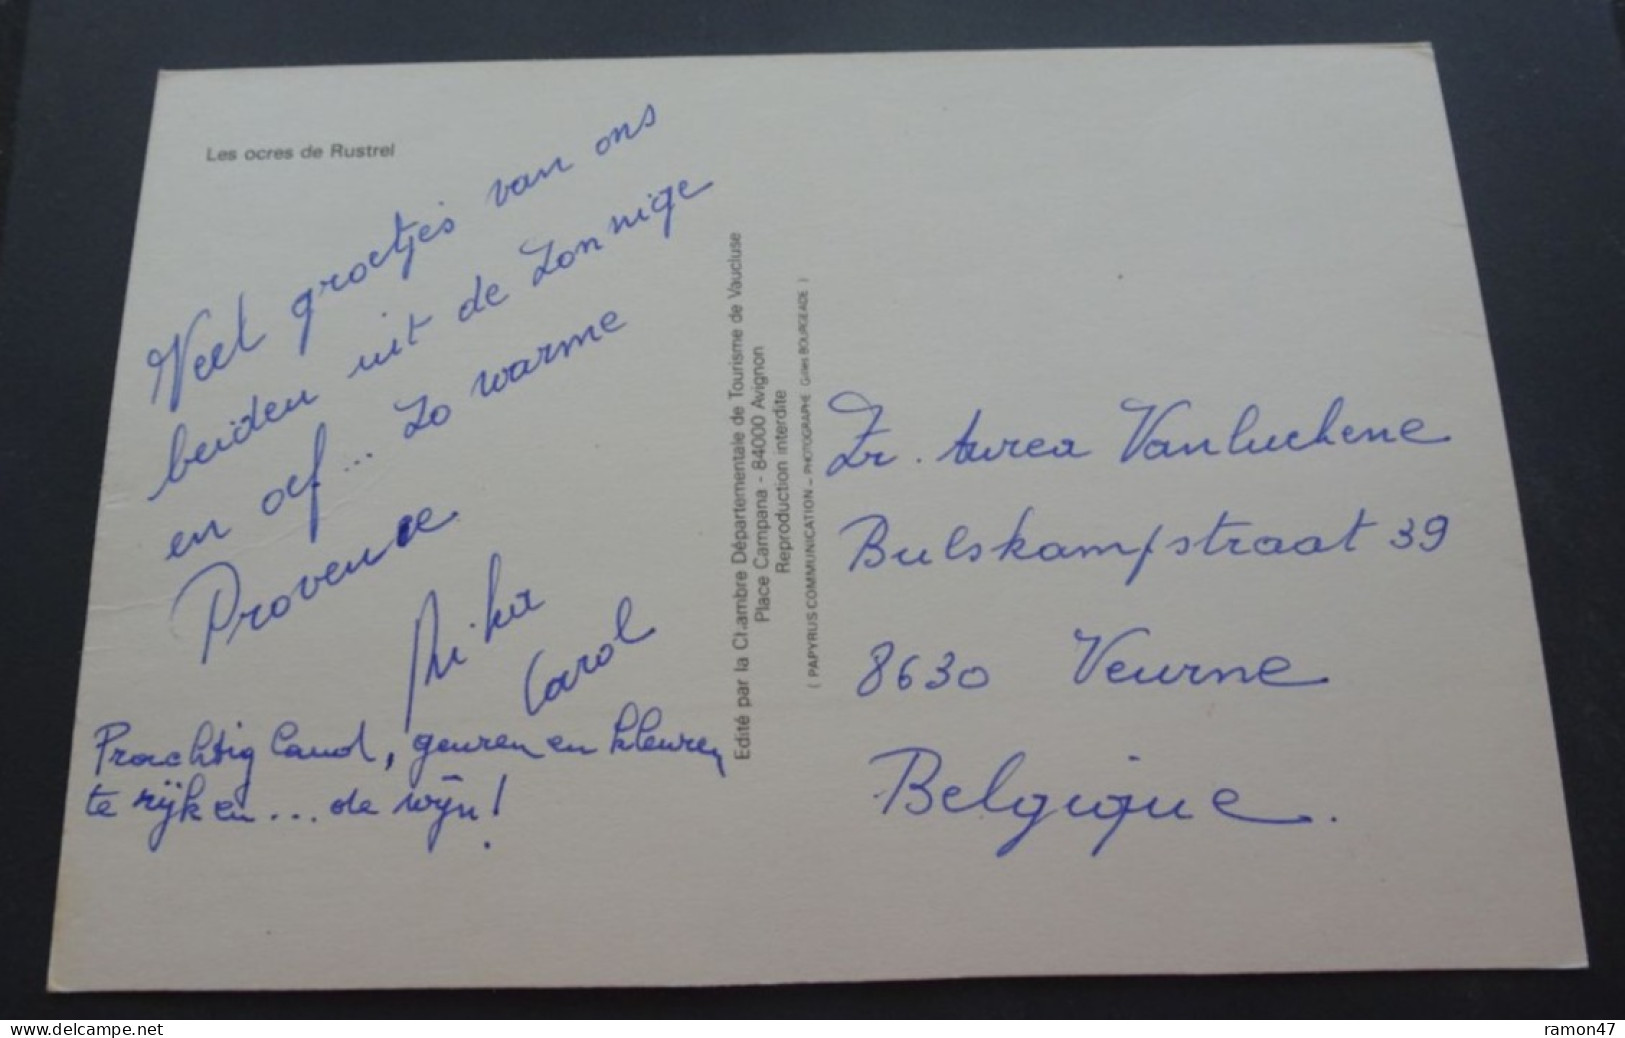 Les ocres de Rustrel
Veel groetjes van ons
beiden uit de zonnige
en of ... zo warme
Provence
Carol
Prachtig land, geuren en kleuren
te rijk en ... de wijn!
Edité par la Chambre Départementale de Tourisme de Vaucluse
Place Campana - 84000 Avignon
Reproduction interdite
( PAPYRUS COMMUNICATION - PHOTOGRAPHE Gilles BOURGEADE )
Zr. Aurea Vanluchene
Bulskampstraat 39
8630 Veurne
Belgique.
www.delcampe.net
ramon47